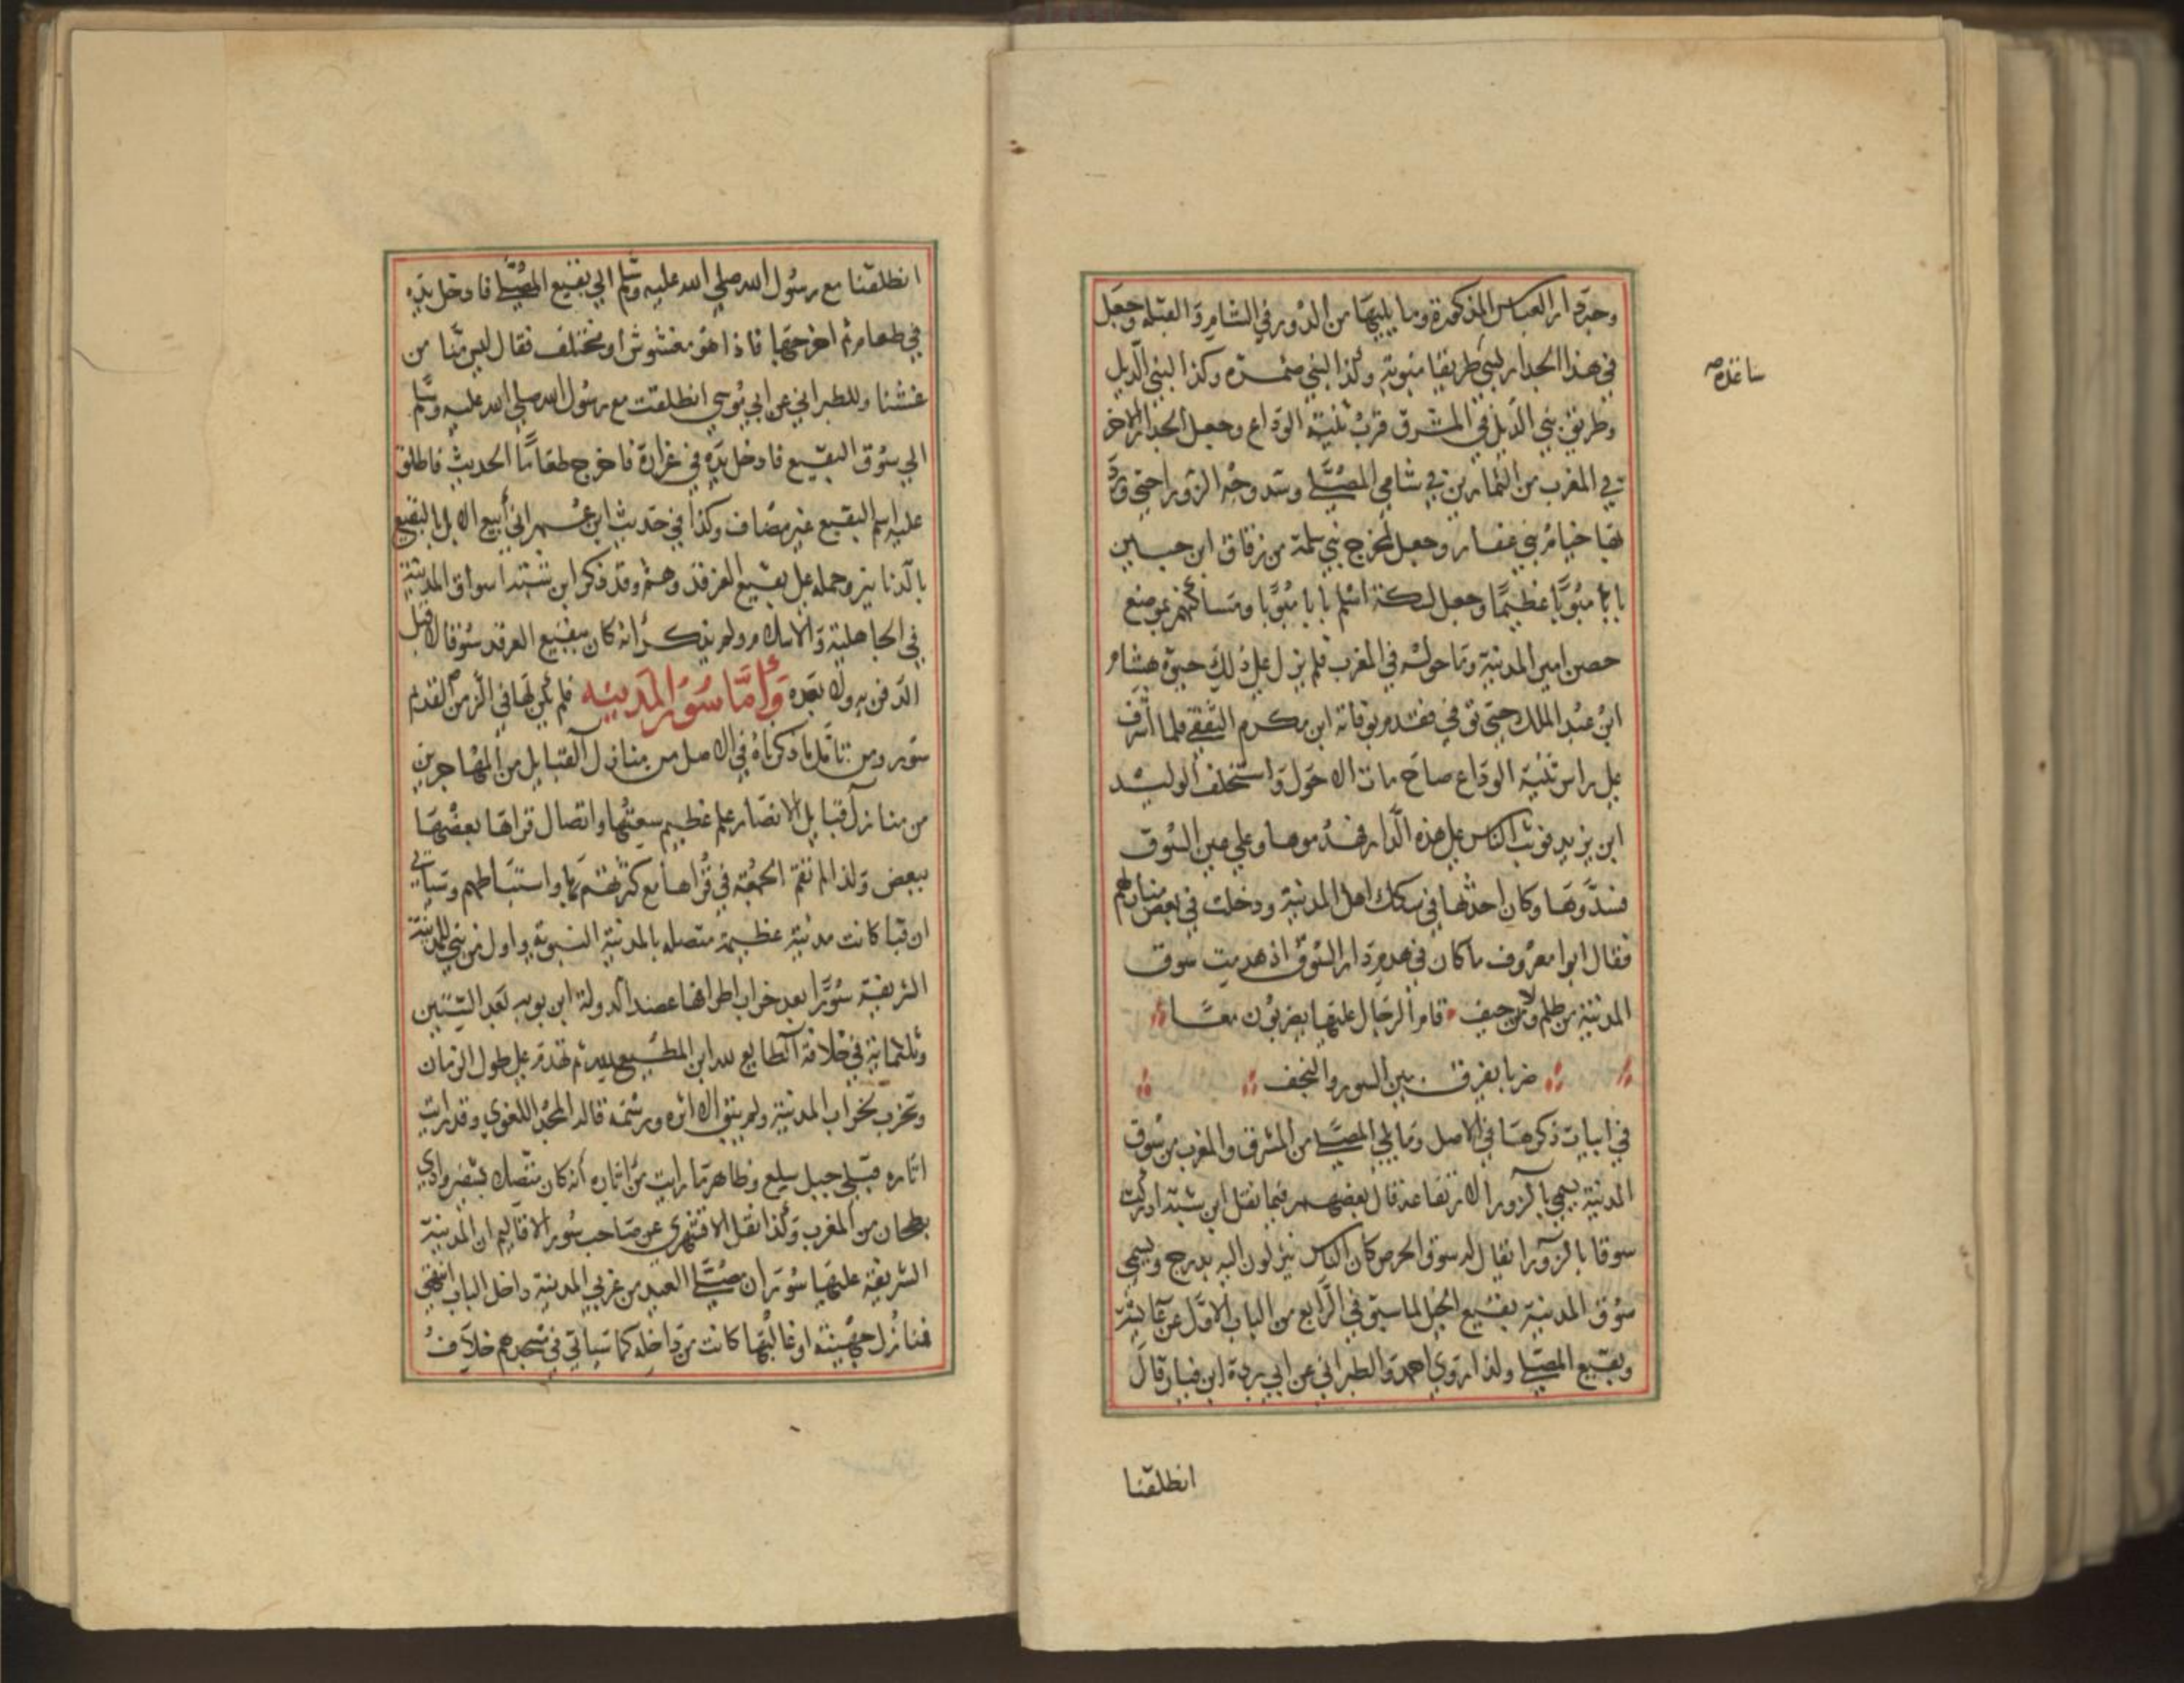 وحيزة دار العباس المذكورة وما يليها من الدور في الشام والقبلة وجعل
في هذا الجدار لبني طريقا مبوبة وكذا لبني ضمرة وكذا لبني الديل
ساعده
وطريق بني الديل في المشرق قرب ثنية الوداع وجعل الجدار الاخر
في المغرب من التمارين في شامي المصلى وسد وجه الزورا حتى ورد
بها خيام بني غفار وجعل لمخرج بني سلمة من زقاق ابن حسين
بابا مبوبا عظيما وجعل لسكة اسلم بابا مبوبا ومساكنهم بموضع
حصن امير المدينة وما حوله في المغرب فلم يزل على ذلك حيوة هشام
ابن عبد الملك حتى توفي فقدم بوفاته ابن مكرم الثقفي فلما اشرف
على راس ثنية الوداع صاح مات الاحول واستخلف الوليد
ابن يزيد فوثب الناس على هذه الدار فهدموها وعلى عين السوق
فسدوها وكان احدثها في سكك اهل المدينة ودخلت في بعض منازلهم
فقال ابوا معروف ما كان في هدم دار السوق اذ هدمت سوق
المدينة من ظلم ولا من حيف قام الرجال عليها يضربون معا
ضربا يفرق بين السور والنجف
في ابيات ذكرها في الاصل وما يلي المصلى من المشرق والمغرب من سوق
المدينة يسمى بالزورا لارتفاعه قال بعضهم فيما نقل ابن شبة ادركت
سوقا بالزورا يقال له سوق الحرص كان الناس ينزلون اليه بدرج ويسمى
سوق المدينة بقيع الخيل لما سبق في الرابع من الباب الاول عن عايشة
وبقيع المصلى ولذا روى احمد والطبراني عن ابي بردة ابن نيار قال
انطلقنا
انطلقنا مع رسول الله صلى الله عليه وسلم الى بقيع المصلى فادخل يده
في طعام ثم اخرجها فاذا هو مغشوش او مختلف فقال ليس منا من
غشنا وللطبراني عن ابي موسى انطلقت مع رسول الله صلى الله عليه وسلم
الى سوق البقيع فادخل يده في غرارة فاخرج طعاما الحديث فاطلق
عليه اسم البقيع غير مضاف وكذا في حديث ابن عمر اني أبيع الابل بالبقيع
بالدنانير وحمله على بقيع الغرقد وهم وقد ذكر ابن شبة اسواق المدينة
في الجاهلية والاسلام ولم يذكر انه كان ببقيع الغرقد سوقا لا قبل
الدفن به ولا بعده وأما سور المدينه فلم يكن لها في الزمن القديم
سور ومن تامل ما ذكرناه في الاصل من منازل القبايل من المهاجرين
من منازل قبايل الانصار علم عظيم سعتها واتصال قراها بعضها
ببعض ولذا لم تقم الجمعة في قراها مع كثرتهم بها واستنباطهم وسياتي
ان قبا كانت مدينة عظيمة متصله بالمدينة النبوية واول من بني للمدينة
الشريفة سورا بعد خراب اطرافها عضد الدولة ابن بويه بعد الستين
وثلثماية في خلافة الطايع لله ابن المطيع لله ثم تهدم على طول الزمان
وتخرب بخراب المدينة ولم يبق الا اثره ورسمه قاله المجد اللغوي وقد رايت
اثاره قبلي جبل سلع وظاهر ما رايت من اثاره أنه كان متصلا بشفير وادي
بطحان من المغرب وكذا نقل الاقشهري عن صاحب سور الاقاليم ان المدينة
الشريفة عليها سور ان مصلى العيد من غربي المدينة داخل الباب انتهى
فمنازل جهينة او غالبها كانت من داخله كما سياتي في مسجدهم خلاف